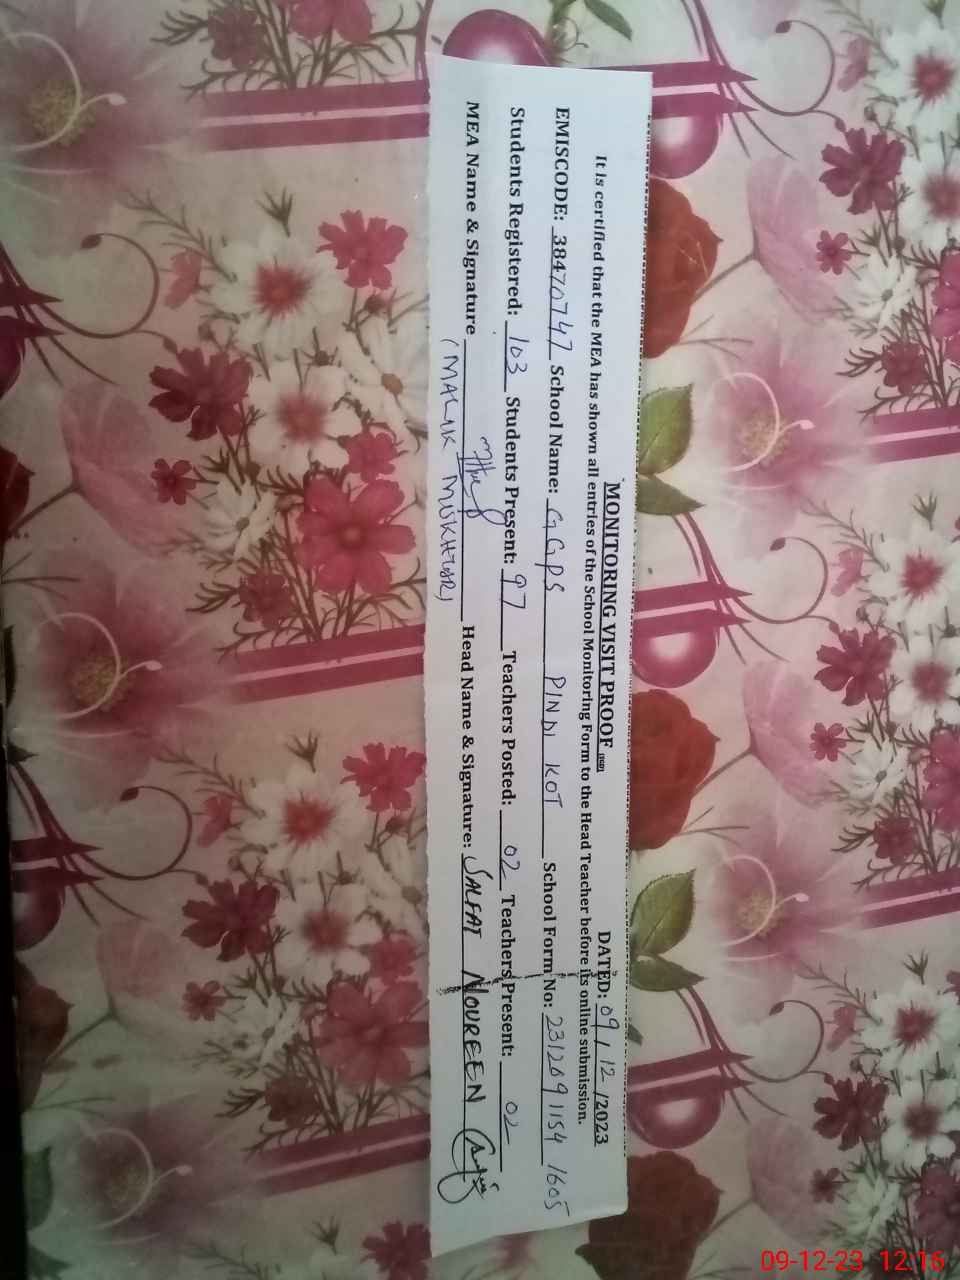 MONITORING VISIT PROOF (DSD) DATED: 09/12/2023
It is certified that the MEA has shown all entries of the School Monitoring Form to the Head Teacher before its online submission.
EMISCODE: 38470747 School Name: GGPS PINDI KOT School Form No: 2312091154 1605
Students Registered: 103 Students Present: 97 Teachers Posted: 02 Teachers Present: 02
MEA Name & Signature Head Name & Signature: SALFAT NOUREEN
(MALIK MUKHTAR)
09-12-23 12:16